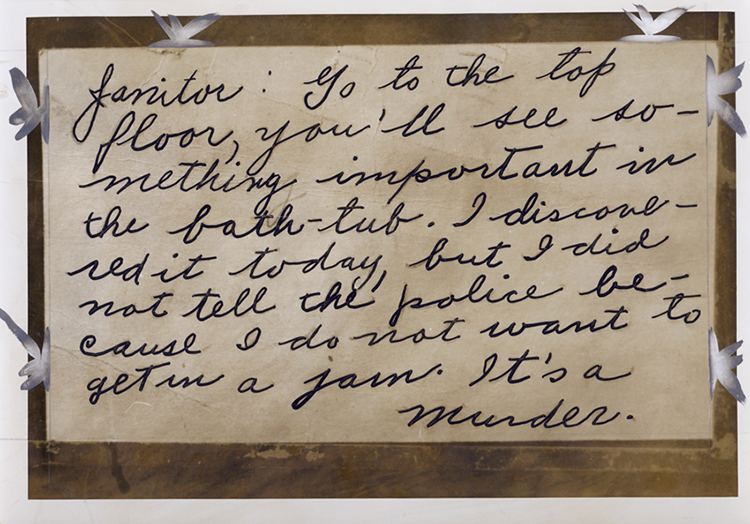 Janitor : Go to the top
floor, you'll see so-
mething important in
the bath-tub. I discove-
red it today, but I did
not tell the police be-
cause I do not want to
get in a jam. It's a
murder.